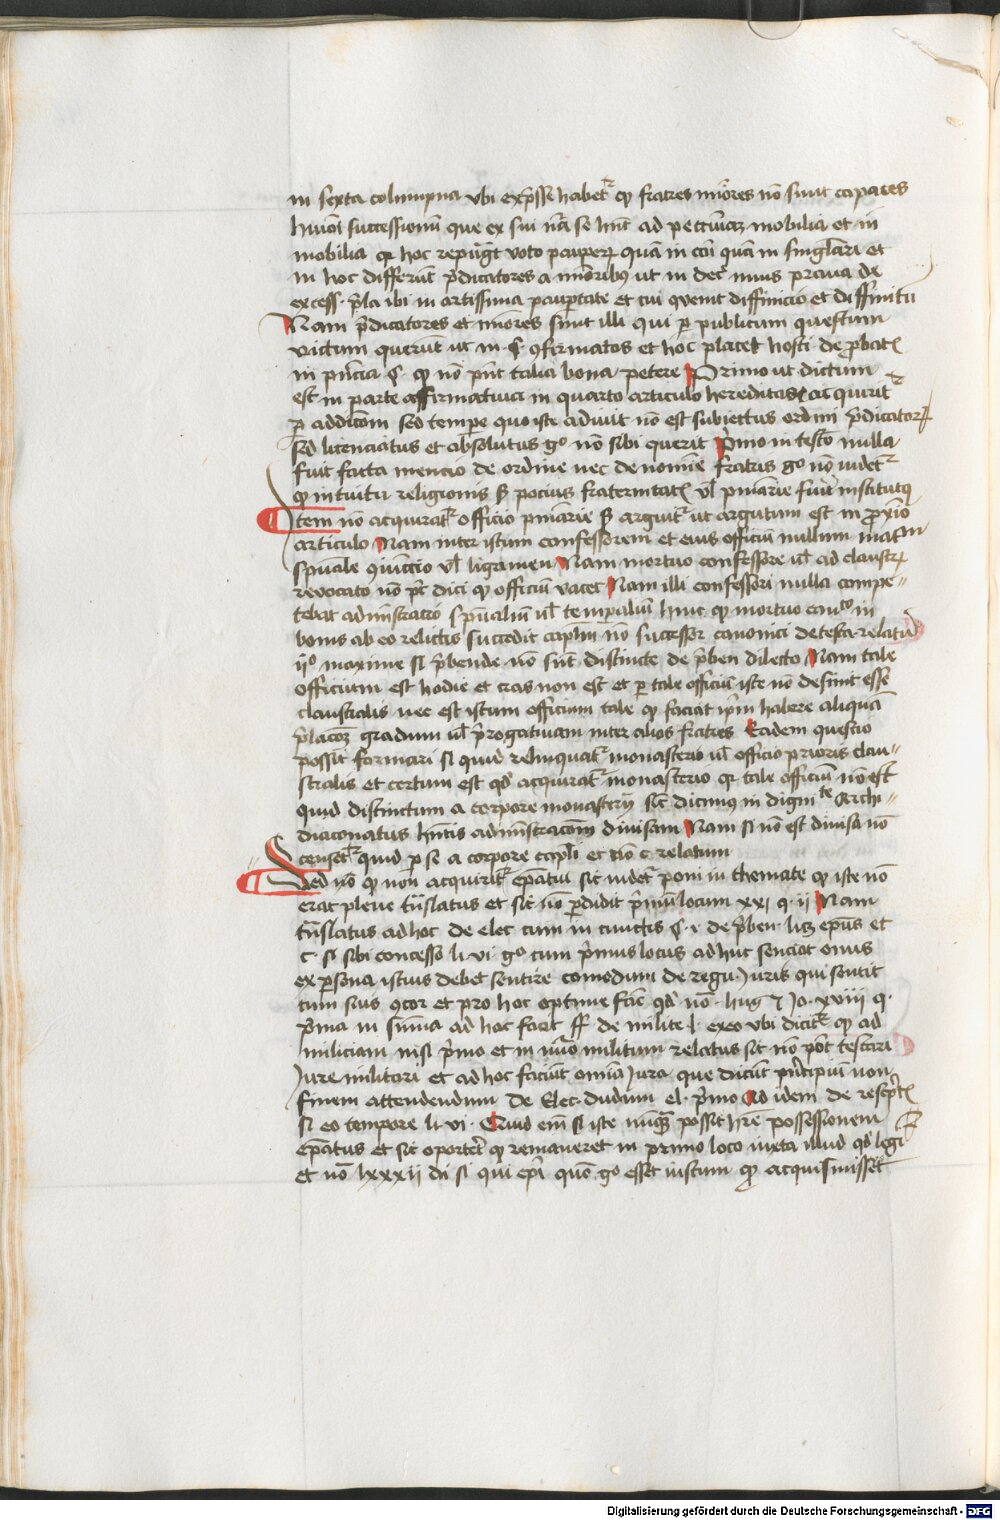 in sexta columpna vbi exp̄sse habet᷑ qꝫ fratres mīores nō sunt capaces
huiōi successionū que ex sui nā se hn̄t ad peccūiaꝝ mobilia et in
mobilia qꝛ hoc repugͣt voto paupeꝝ quā in cōi quā in singlari et
in hoc differūt p̄dicatores a mīoribꝰ ut in dec̄ nimis praua de
excess. p̄la ibi in artissima paup̄tate et cui ꝯuenit diffinicio et diffinitū
Nam p̄dicatores et mīores sunt illi qui ꝑ publicum questum
victum querūt ut in .§. ꝯfirmatos et hoc placet hosti. de ꝓbat᷑
in pn̄cia §. qꝫ nō pn̄t talia bona petere Primo ut dictum
est in parte affirmatiua in quarto articulo hereditas ac quirit᷑
ꝑ addicōm sed tempe quo iste adiuit nō est subiectus ordini p̄dicatoꝝ
sed licenciatus et absolutus gͦ nō sibi querit Primo in testō nulla
fuit facta mencio de ordine nec de nomīe fratris gͦ nō videt᷑
qꝫ intuitu religionis sꝫ pocius fraternitat᷑ vl̄ pn̄iarie fuit institutꝰ
Item nō acquirat᷑ officio pn̄iarie sꝫ arguit᷑ ut argutum est in ꝓxīo
articulo Nam inter istum confessorem et eius officiū nullum mat̄m
sp̄uale ꝯiunctio vl̄ ligamen Nam mortuo confessore vl̄ ad claustꝝ
reuocato nō pt̄ dici qꝫ officiū vacet Nam illi confessori nulla compe-
tebat admīstratio sp̄ualiū vl̄ temp̄aliū hinc qꝫ mortuo canͦᶜᵒ in
bonis ab eo relictis succedit capl̄m nō successor canonici de testa. relatū
ijͦ maxime si p̄bende nō sūt distincte de p̄ben dilecto Nam tale
officium est hodie et cras non est et ꝑ tale officiū iste nō desinit esse
claustralis nec est istum officium tale qꝫ faciat ip̄m habere aliquā
p̄lacōꝫ gradum vl̄ p̄rogatiuam inter alios fratres Eadem questio
possit formari si quid relinquat᷑ monasterio vl̄ officio prioris clau-
stralis et certum est qd̄ acquirat᷑ monasterio qꝛ tale officiū nō est
quid distinctum a corpore monasterij sic̄ dicimus in dignͭᵉ Archi-
diaconatus hn̄tis admīstracōm diuisam Nam si nō est diuisa nō
censet᷑ quid ꝑ se a corpore capl̄i et tō c. relatum
Sed nō qꝫ non acquirit᷑ ep̄atui sic videt᷑ poni in themate qꝫ iste nō
erat plene tn̄slatus et sic nō ꝑdidit p̄mū locum xxi q. ij Nam
tn̄slatus ad hoc de elec cum in cunctis §. i. de p̄ben. licꝫ ep̄us et
c. si sibi concesso li. vi. gͦ cum p̄mus locus adhuc senciat onus
ex ꝑsona istius debet sentire comodum de regu. iuris qui sentit
cum suis ꝯcor et pro hoc optime facͭ qd̄ nō. hug ⁊ Jo. xviij q.
p̄ma in sūma ad hoc facit ff de milite l. exeo vbi dicit᷑ qꝫ ad
miliciam nisi p̄mo et in nūo militum relatus sit nō pōt testari
Jure militari et ad hoc faciūt omīa iura que dicūt pn̄cipiū non
finem attendendum de Elec. dudum el. p̄mo Ad idem de rescpt᷑
si eo tempore li. vi. Quid em̄ si iste nūqꝫ possit hr̄e possessionem
ep̄atus et sic oporteret qꝫ remaneret in primo loco iuxta illud qd̄ legi
et nō lxxxij di si qui ep̄i quō gͦ esset iustum qꝫ acquisiuisset
Digitalisierung gefördert durch die Deutsche Forschungsgemeinschaft - DFG